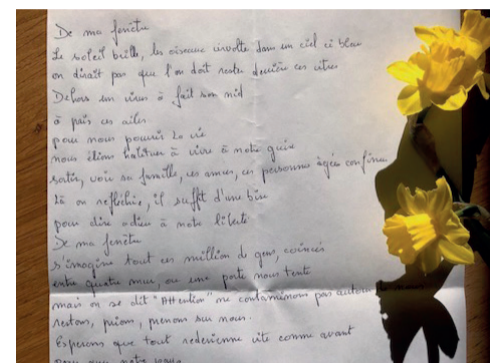 De ma fenêtre
Le soleil brille, les oiseaux virvolte dans un ciel ci bleu
on dirait pas que l'on doit reste derrière ces vitres
Dehors un virus à fait son nid
à pris ces ailes
pour nous pourrir la vie
nous étions habituer à vivre à notre guise
sortir, voir sa famille, ces amies, ces personnes âgées confinées
Là on réfléchie, il suffit d'une bise
pour dire adieu à notre liberté
De ma fenêtre
s'imagine tout ces million de gens, coincés
entre quatre murs, ou une porte nous tente
mais on se dit "Attention" ne contaminons pas autour de
restons, prions, prenons sur nous.
Esperons que tout redevienne vite comme avant
pour que notre